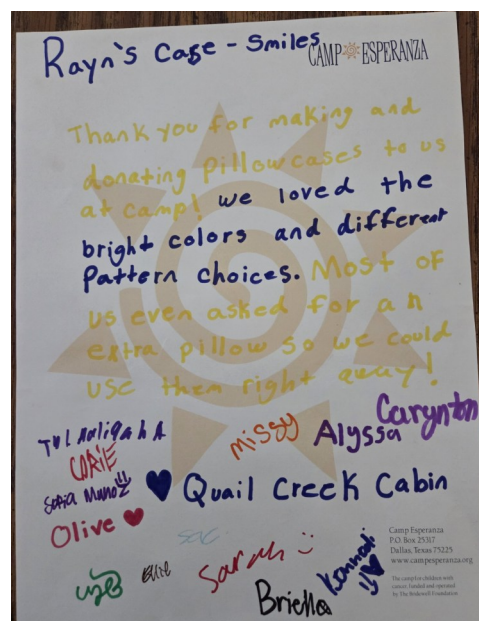 Rayn's Case - Smiles
CAMP ESPERANZA
Thank you for making and
donating pillowcases to us
at camp! we loved the
bright colors and different
Pattern choices. Most of
us even asked for an
extra pillow so we could
use them right away!
Carynton
missy Alyssa
CORIE
Sofia Munoz
Quail Creek Cabin
Olive
Sarah
Briella
Camp Esperanza
P.O. Box 25317
Dallas, Texas 75225
www.campesperanza.org
The camp for children with
cancer, funded and operated
by The Bridewell Foundation